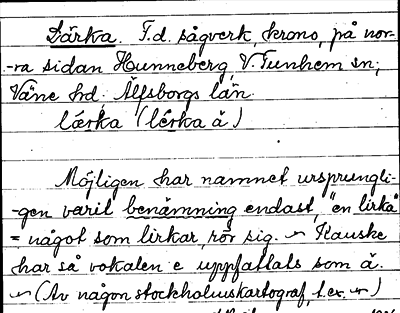 Lärka. F.d. sågverk, krono, på nor-
-ra sidan Hunneberg, V. Tunhem sn;
Väne hd. Älfsborgs län.
lærka (lérka ă)
Möjligen har namnet ursprungli-
-gen varit benämning endast, "en lirka"
= något som lirkar, rör sig. ~ Kanske
har så vokalen e uppfattats som ä.
~ (Av någon stockholmskartograf, t.ex. ~)